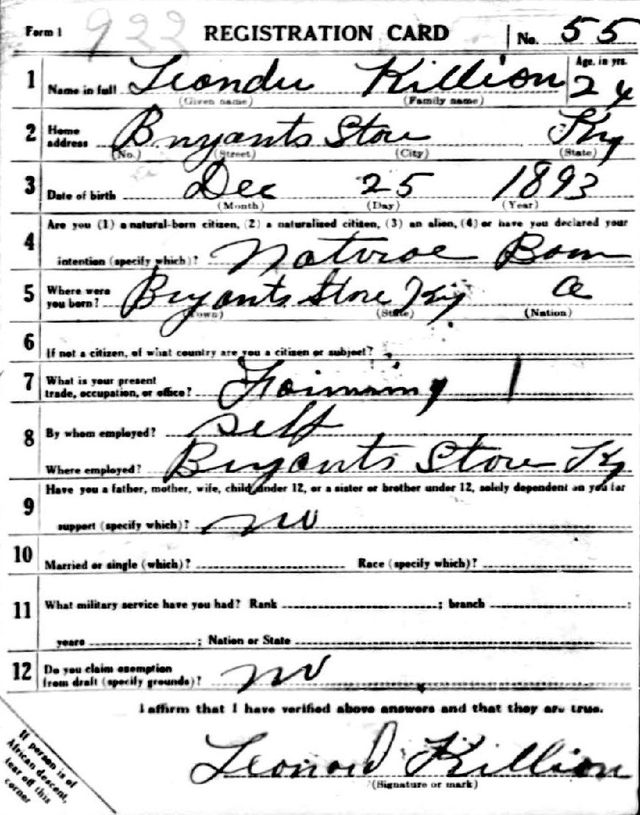 Form 1 933 REGISTRATION CARD No. 55
1 Name in full Leander Killion Age, in yrs. 24
(Given name) (Family name)
2 Home address Bryants Store Ky
(No.) (Street) (City) (State)
3 Date of birth Dec 25 1893
(Month) (Day) (Year)
4 Are you (1) a natural-born citizen, (2) a naturalized citizen, (3) an alien, (4) or have you declared your
intention (specify which)? Natural Born
5 Where were you born? Bryants Store Ky
(Town) (State) (Nation)
6 If not a citizen, of what country are you a citizen or subject?
7 What is your present trade, occupation, or office? Farming
8 By whom employed? self
Where employed? Bryants Store Ky
9 Have you a father, mother, wife, child under 12, or a sister or brother under 12, solely dependent on you for
support (specify which)? no
10 Married or single (which)? Race (specify which)?
11 What military service have you had? Rank ; branch ;
years ; Nation or State
12 Do you claim exemption from draft (specify grounds)? no
I affirm that I have verified above answers and that they are true.
Leonard Killion
(Signature or mark)
If person is of
African descent,
tear off this
corner